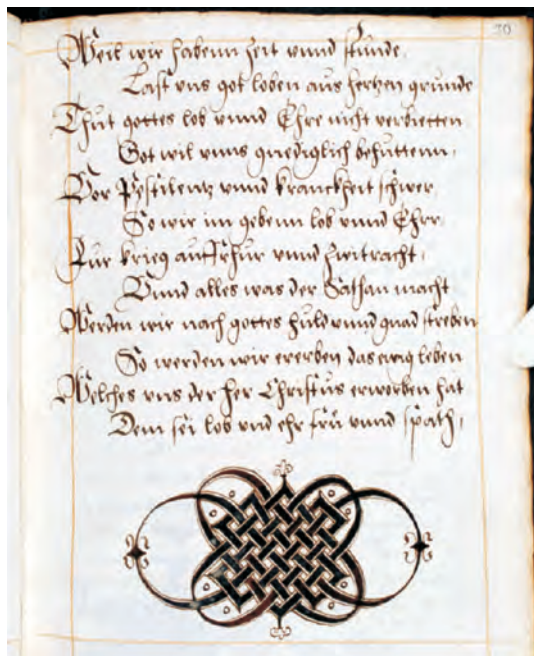 70
Weil wir habenn Zeit vnnd stunde,
Last vns got loben aus hertzen grunde
Thut gottes lob vnnd Ehre nicht verbietten
Got wil vnns gnediglich behuttenn,
Vor Pestilentz vnnd kranckheit schwer,
So wir im gebenn lob vnnd Ehrr,
Fur krieg auffrhur vnnd Zwitracht,
Vnnd alles was der Sathan macht
Werden wir nach gottes huld vnnd gnad streben
So werden wir ererben das ewig leben
Welches vns der her Christus erworben hat
Dem sei lob vnd ehr frü vnnd spath,